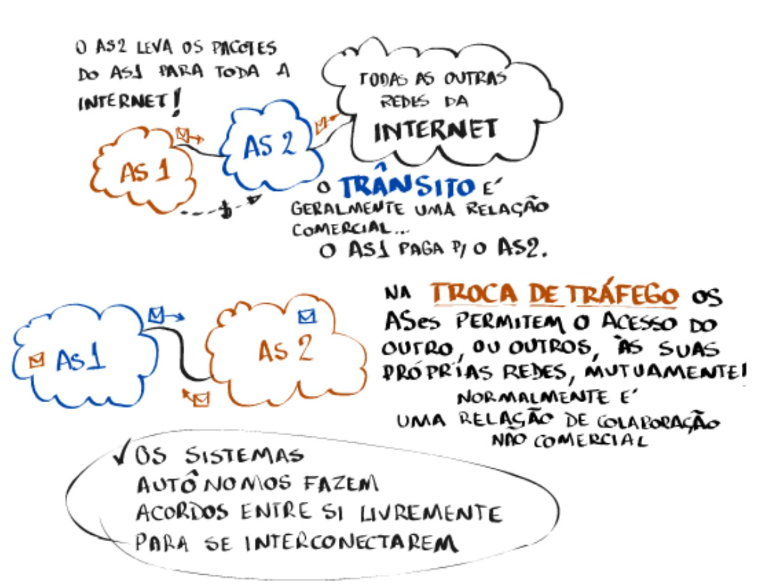 O AS2 LEVA OS PACOTES
DO AS1 PARA TODA A
INTERNET!
TODAS AS OUTRAS
REDES DA
INTERNET
AS 1
AS 2
$
O TRÂNSITO É
GERALMENTE UMA RELAÇÃO
COMERCIAL...
O AS1 PAGA P/ O AS2.
AS1
AS 2
NA TROCA DE TRÁFEGO OS
ASes PERMITEM O ACESSO DO
OUTRO, OU OUTROS, ÀS SUAS
PRÓPRIAS REDES, MUTUAMENTE!
NORMALMENTE É
UMA RELAÇÃO DE COLABORAÇÃO
NÃO COMERCIAL
✓OS SISTEMAS
AUTÔNOMOS FAZEM
ACORDOS ENTRE SI LIVREMENTE
PARA SE INTERCONECTAREM